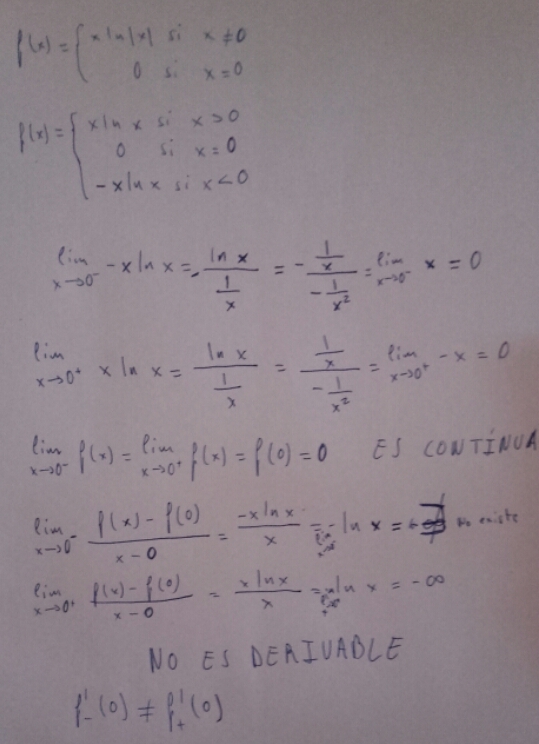 f(x) = { x ln|x| si x ≠ 0
0 si x = 0
f(x) = { x ln x si x > 0
0 si x = 0
- x ln x si x < 0
lim x→0⁻ - x ln x = - ln x / (1/x) = - (1/x) / (- 1/x²) = lim x→0⁻ x = 0
lim x→0⁺ x ln x = ln x / (1/x) = (1/x) / (- 1/x²) = lim x→0⁺ - x = 0
lim x→0⁻ f(x) = lim x→0⁺ f(x) = f(0) = 0 ES CONTÍNUA
lim x→0⁻ (f(x) - f(0)) / (x - 0) = (- x ln x) / x = lim - ln x = ∄ no existe
lim x→0⁺ (f(x) - f(0)) / (x - 0) = (x ln x) / x = lim ln x = - ∞
NO ES DERIVABLE
f'₋(0) ≠ f'₊(0)